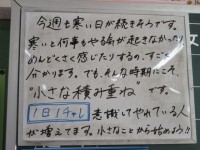 今週も寒い日が続きそうです。
寒いと何事もやる気が起きなかったり
めんどくさく感じたりするの、すごーく
分かります。でも、そんな時期にこそ、
“小さな積み重ね”です。
1日1チャレ 走「挑」してやれている人
が増えてます。小さなことから始めよう!!